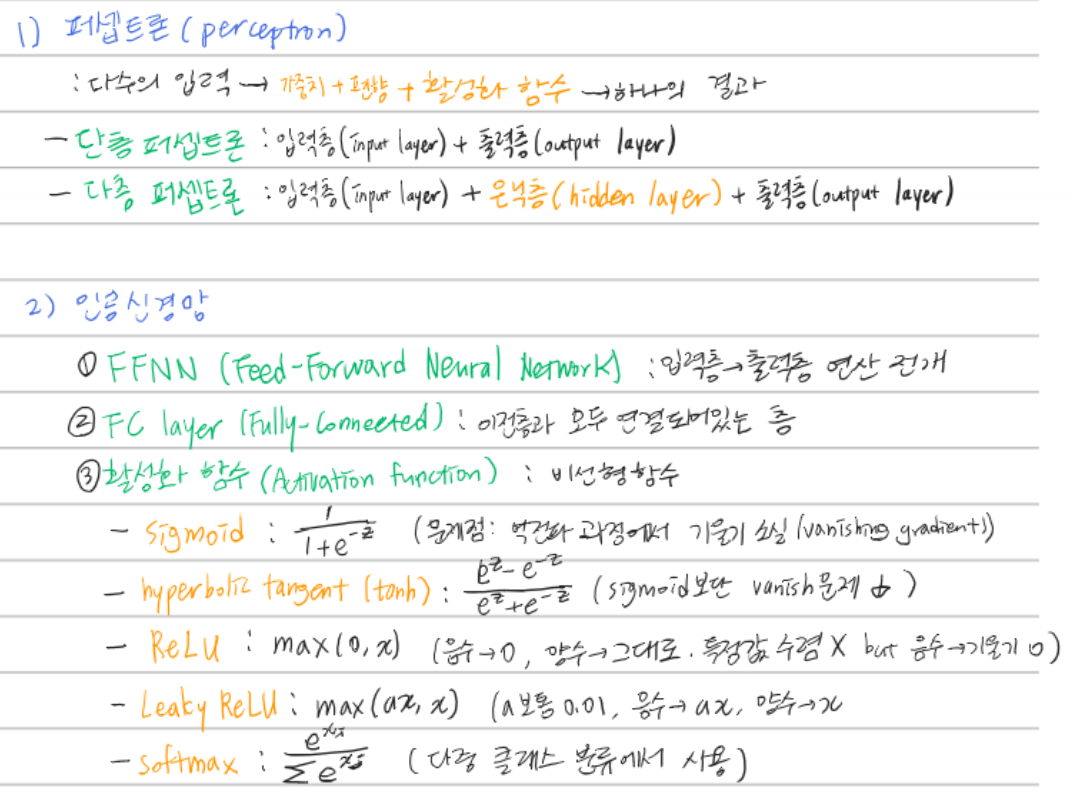 1) 퍼셉트론 (perceptron)
: 다수의 입력 → 가중치 + 편향 + 활성화 함수 → 하나의 결과
- 단층 퍼셉트론 : 입력층(input layer) + 출력층(output layer)
- 다층 퍼셉트론 : 입력층(input layer) + 은닉층(hidden layer) + 출력층(output layer)
2) 인공신경망
① FFNN (Feed-Forward Neural Network) : 입력층→출력층 연산 전개
② FC layer (Fully-Connected) : 이전층과 모두 연결되어있는 층
③ 활성화 함수 (Activation function) : 비선형함수
- sigmoid : 1/(1+e^-z) (문제점: 역전파 과정에서 기울기 소실 (vanishing gradients))
- hyperbolic tangent (tanh) : (e^z - e^-z)/(e^z + e^-z) (sigmoid보단 vanish문제 ↓)
- ReLU : max(0, x) (음수→0, 양수→그대로. 특정값 수렴 X but 음수→기울기 0)
- Leaky ReLU : max(ax, x) (a보통 0.01, 음수→ax, 양수→x
- softmax : e^x/∑e^xj (다중 클래스 분류에서 사용)